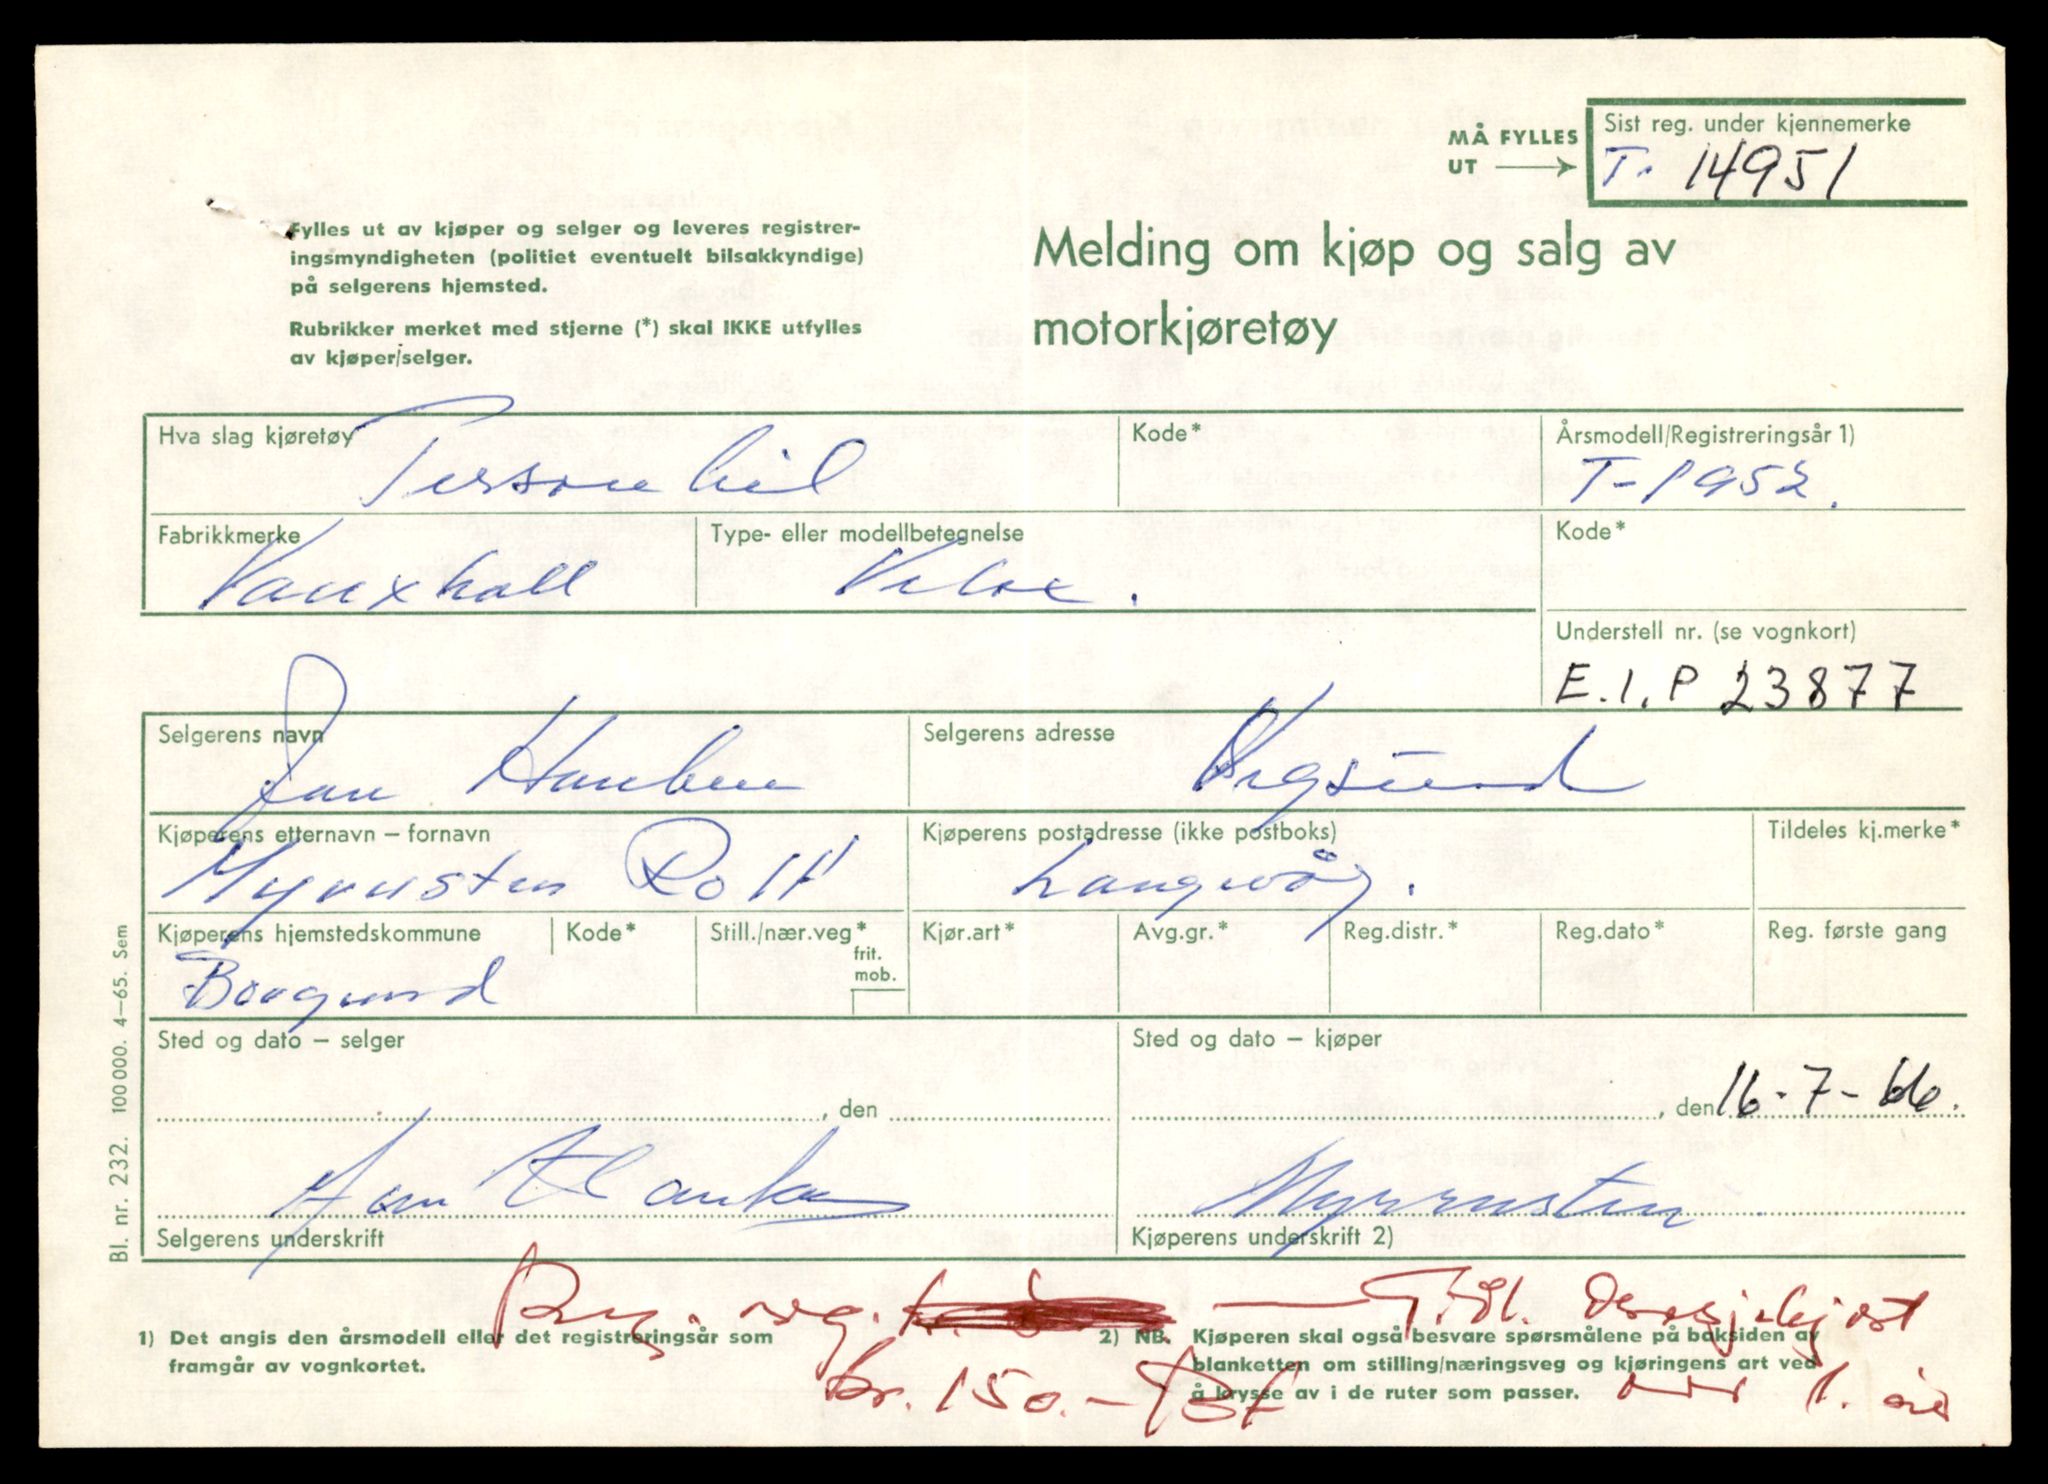 Sist reg. under kjennemerke
MÅ FYLLES
UT
T. 14951
Fylles ut av kjøper og selger og leveres registrer-
ingsmyndigheten (politiet eventuelt bilsakkyndige)
på selgerens hjemsted.
Rubrikker merket med stjerne (*) skal IKKE utfylles
av kjøper/selger.
Melding om kjøp og salg av
motorkjøretøy
Hva slag kjøretøy Kode* Årsmodell/Registreringsår 1)
Personbil T-1952.
Fabrikkmerke Type- eller modellbetegnelse Kode*
Vauxhall Velox.
Understell nr. (se vognkort)
E.I.P 23877
Selgerens navn Selgerens adresse
Jan Vegsund
Kjøperens etternavn – fornavn Kjøperens postadresse (ikke postboks) Tildeles kj.merke*
Rolf Langevåg.
Kjøperens hjemstedskommune Kode* Still./nær.veg* Kjør.art* Avg.gr.* Reg.distr.* Reg.dato* Reg. første gang
frit.
mob.
Borgund
Sted og dato – selger Sted og dato – kjøper
, den , den 16-7-66.
Selgerens underskrift Kjøperens underskrift 2)
reg.
1) Det angis den årsmodell eller det registreringsår som
framgår av vognkortet.
2) NB. Kjøperen skal også besvare spørsmålene på baksiden av
blanketten om stilling/næringsveg og kjøringens art ved
å krysse av i de ruter som passer.
kr. 150.-
Bl. nr. 232. 100 000. 4–65. Sem